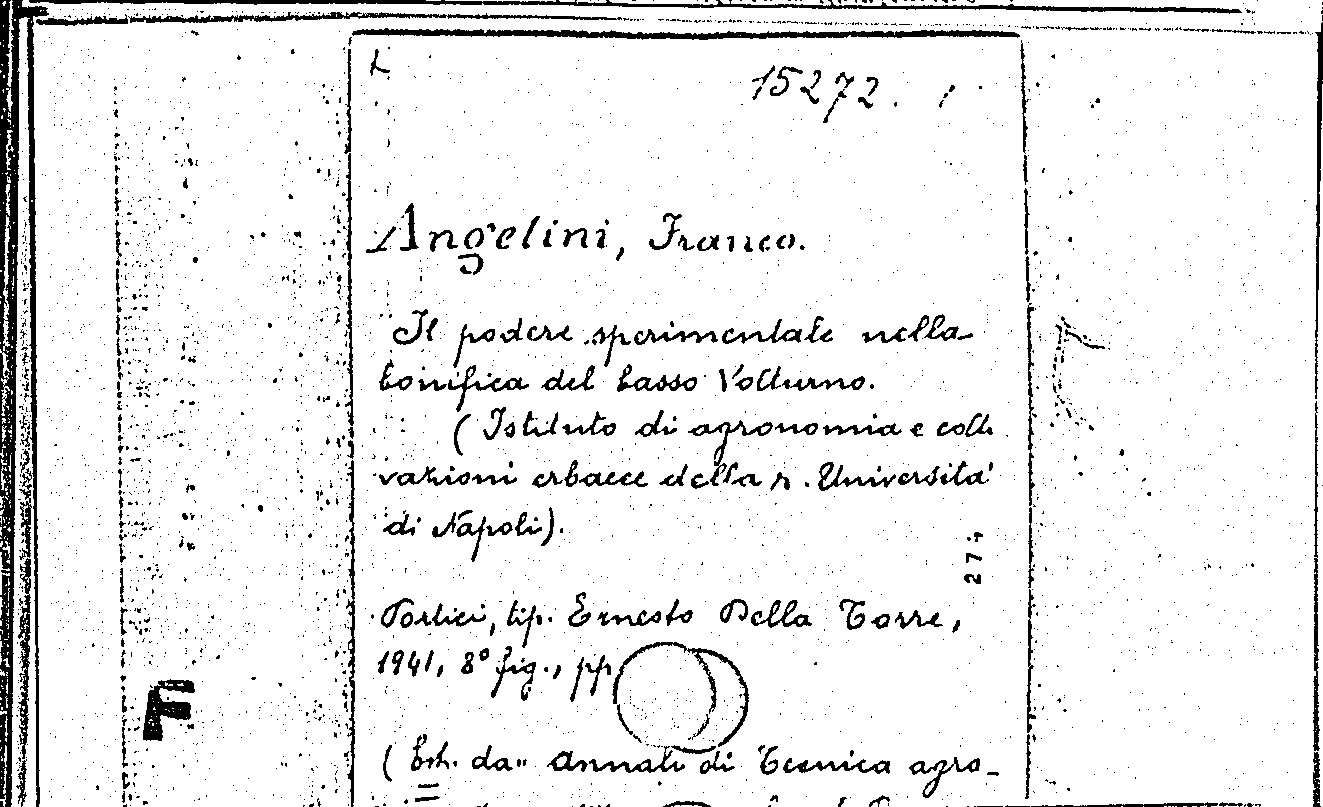 15272.
Angelini, Franco.
Il podere sperimentale nella
bonifica del basso Volturno.
(Istituto di agronomia e colti
vazioni erbacee della r. Università
di Napoli).
274
Portici, tip. Ernesto Della Torre,
1941, 8° fig., pp.
F
(Estr. da " Annali di Tecnica agra-